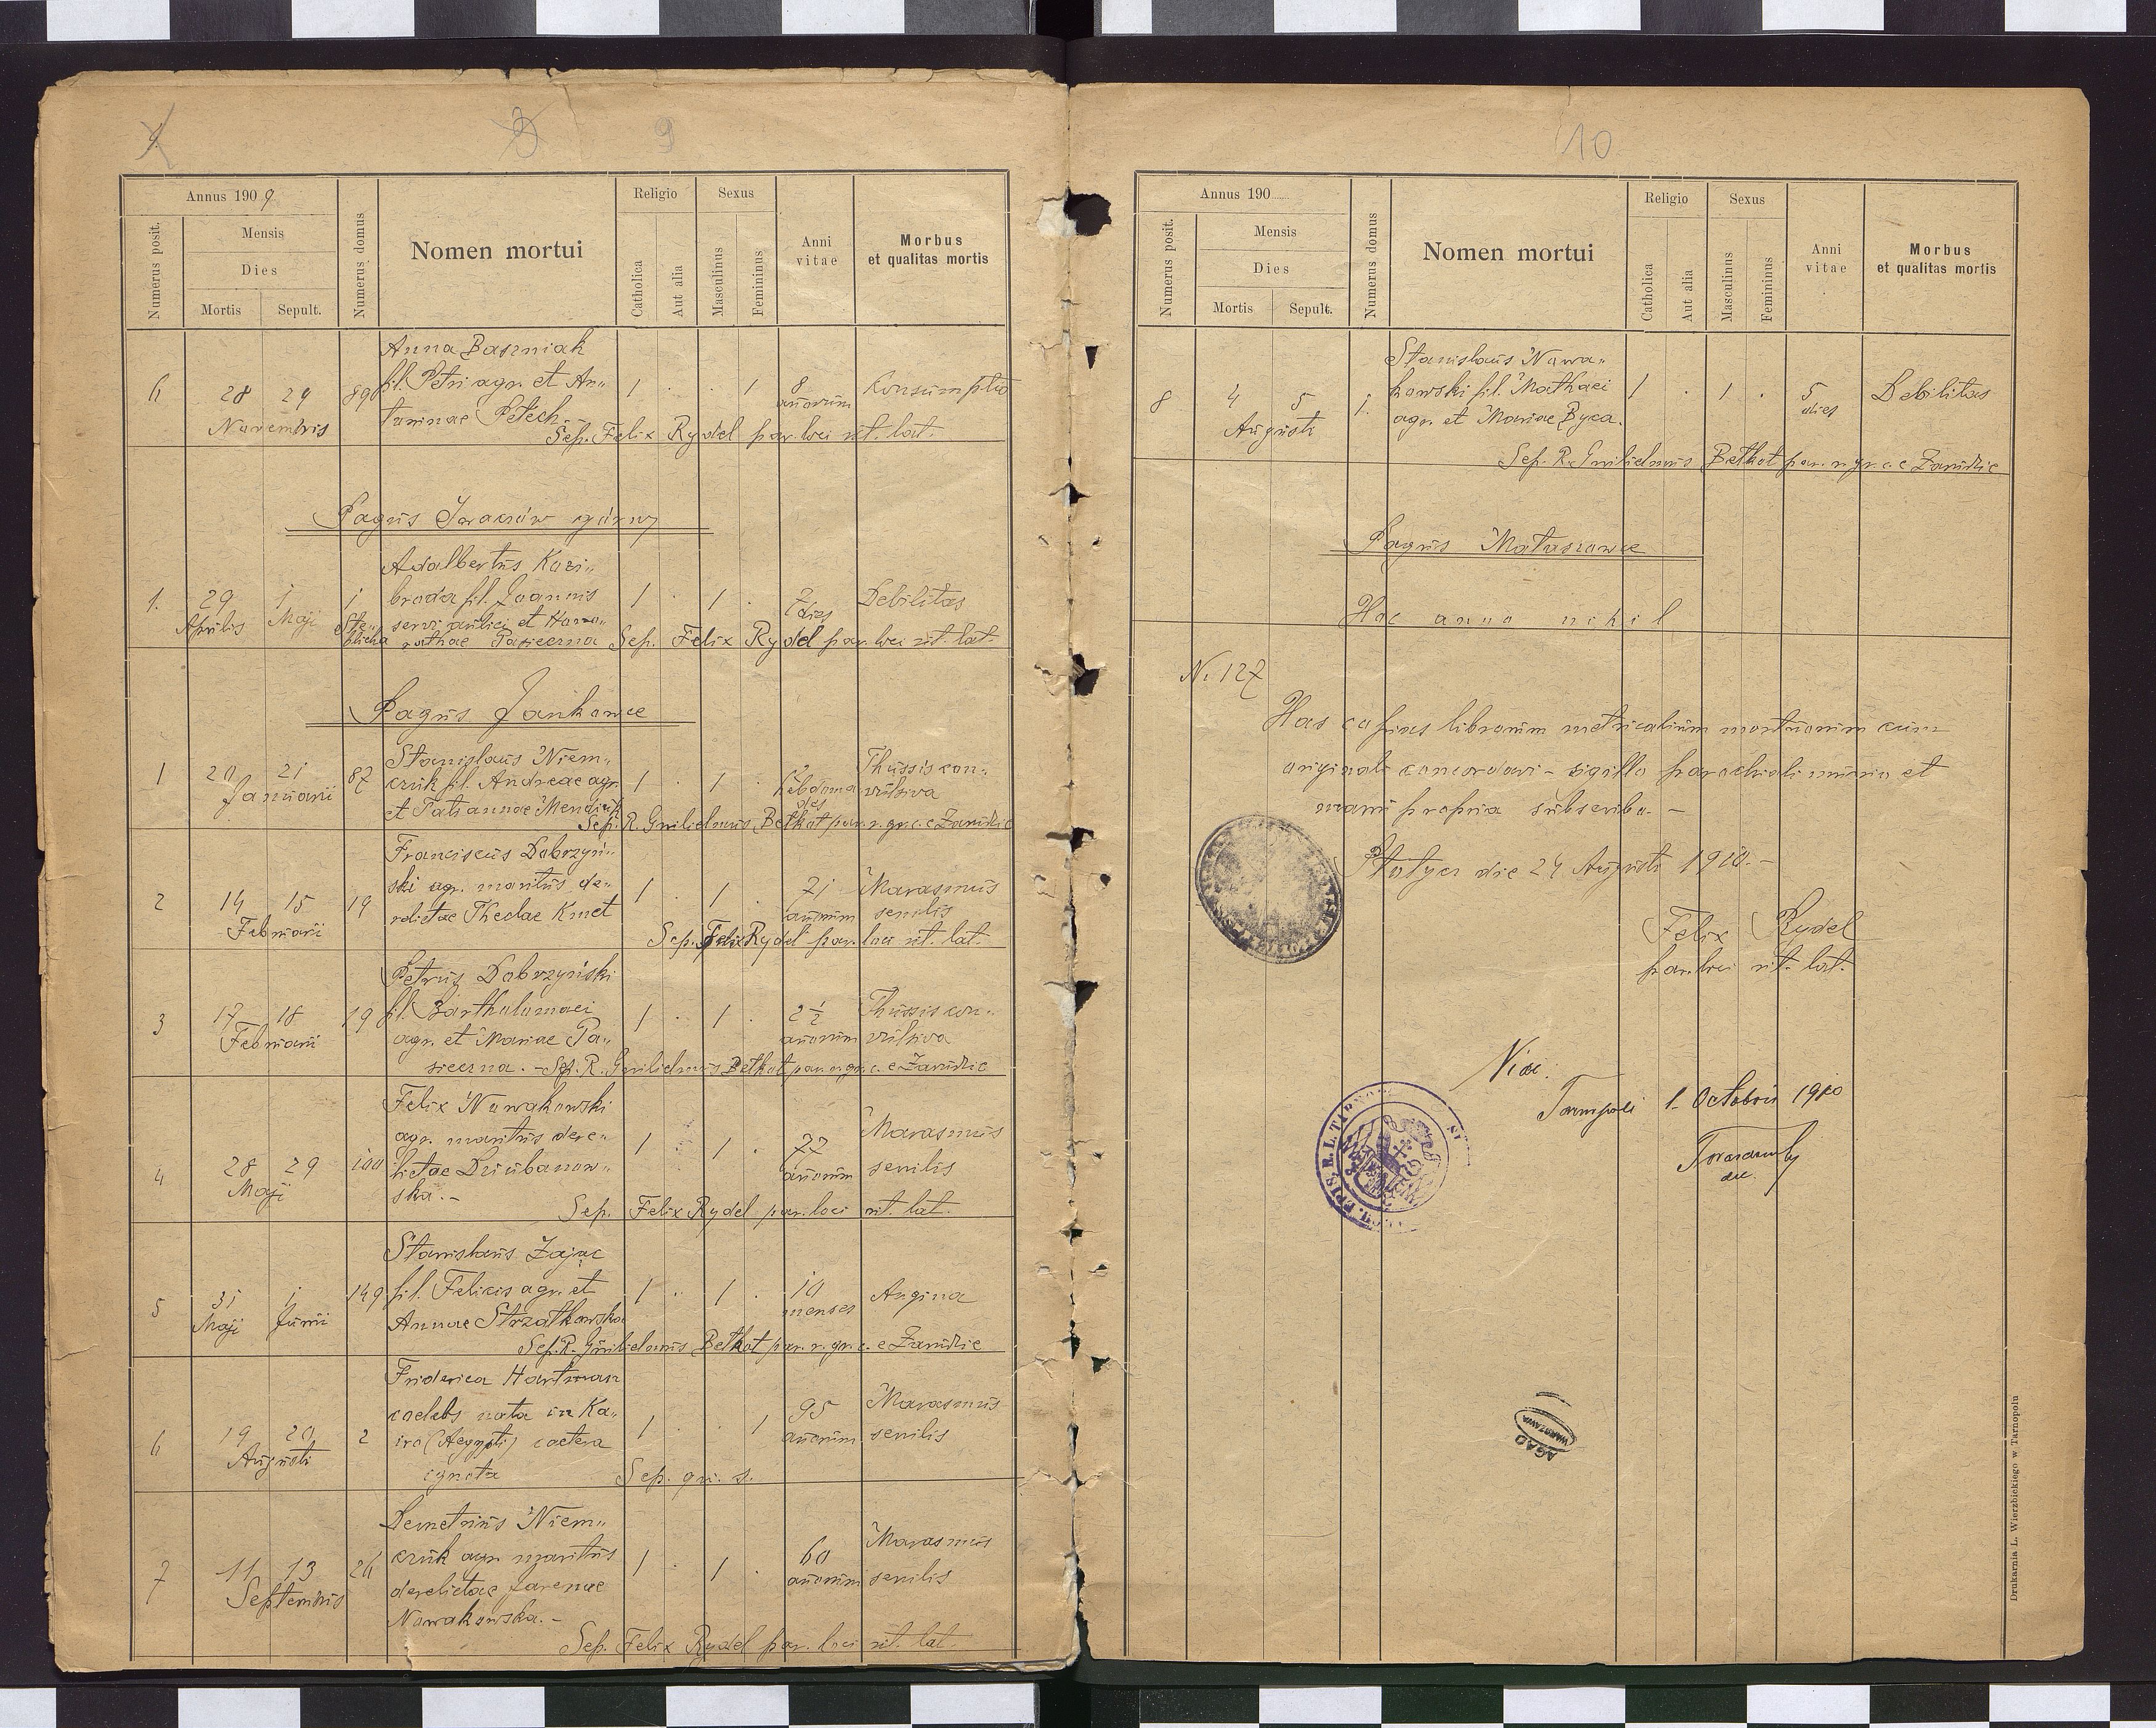 9
10
Annus 1909
Numerus posit.
Mensis
Dies
Mortis
Sepult.
Numerus domus
Nomen mortui
Religio
Catholica
Aut alia
Sexus
Masculinus
Femininus
Anni
vitae
Morbus
et qualitas mortis
Anna Baszniak
6 28 29 89 fil. Petri agr. et An„ 1 . . 1 8 Konsumptio
Novembris toninae Petech. annorum
Sep. Felix Rydel par. loci rit. lat.
Pagus Iwaczów górny
Adalbertus Kozi„
1. 29 1 1 broda fil. Joannis 1 . 1 . 7 Debilitas
Aprilis Maji servi aulici et Hono„ dies
rathae Pasieczna Sep. Felix Rydel par. loci rit. lat.
Pagus Jankowce
Stanislaus Niem„
1 20 21 87 czuk fil. Andreae agr. 1 . 1 . Thussis con„
Januarii et Tatiannae hebdoma vulsiva
des
Sep. R. Guilielmus Betkot par. r. gr. c. e Zarudzie
Franciscus Dobrzyń„
2 14 15 19 ski agr. maritus de„ 1 . 1 . 71 Marasmus
Februarii relictae Theclae Kmet annorum senilis
Sep. Felix Rydel par. loci rit. lat.
Petrus Dobrzyński
3 17 18 19 fil. Bartholomaei 1 . 1 . 2½ Thussis con„
Februarii agr. et Mariae Pa„ annorum vulsiva
sieczna. – Sep. R. Guilielmus Betkot par. r. gr. c. e Zarudzie
Felix Nowakowski
agr. maritus dere„
4 28 29 100 lictae Dziubanow„ 1 . 1 . 77 Marasmus
Maji ska. – annorum senilis
Sep. Felix Rydel par. loci rit. lat.
Stanislaus Zając
5 31 1 149 fil. Felicis agr. et 1 . 1 . 10 Angina
Maji Junii Annae Strzałkowska menses
Sep. R. Guilielmus Betkot par. r. gr. c. e Zarudzie
Friderica Hartman
caelebs nata in Ka„
6 19 20 2 iro (Aegypti) caetera 1 . . 1 95 Marasmus
Augusti ignota annorum senilis
Sep. gr. s.
Demetrius Niem„
7 11 13 26 czuk agr. maritus 1 . 1 . 60 Marasmus
Septembris derelictae annorum senilis
Nowakowska. –
Sep. Felix Rydel par. loci rit. lat.
Annus 190
Numerus posit.
Mensis
Dies
Mortis
Sepult.
Numerus domus
Nomen mortui
Religio
Catholica
Aut alia
Sexus
Masculinus
Femininus
Anni
vitae
Morbus
et qualitas mortis
Stanislaus Nowa„
8 4 5 1. kowski fil. Mathaei 1 . 1 . 5 Debilitas
Augusti agr. et Mariae Byca. dies
Sep. R. Guilielmus Betkot par. r. gr. c. e Zarudzie
Pagus Mataszowce
Hoc anno nihil
N. 127
Has copias librorum metricalium mortuorum cum
originali concordavi – sigillo parochiali munio et
manu propria subscribo. –
Płotycz die 24 Augusti 1910. –
Felix Rydel
par. loci rit. lat.
Tarnopoli 1. Octobris 1910
AGAD
WARSZAWA
Drukarnia L. Wierzbickiego w Tarnopolu